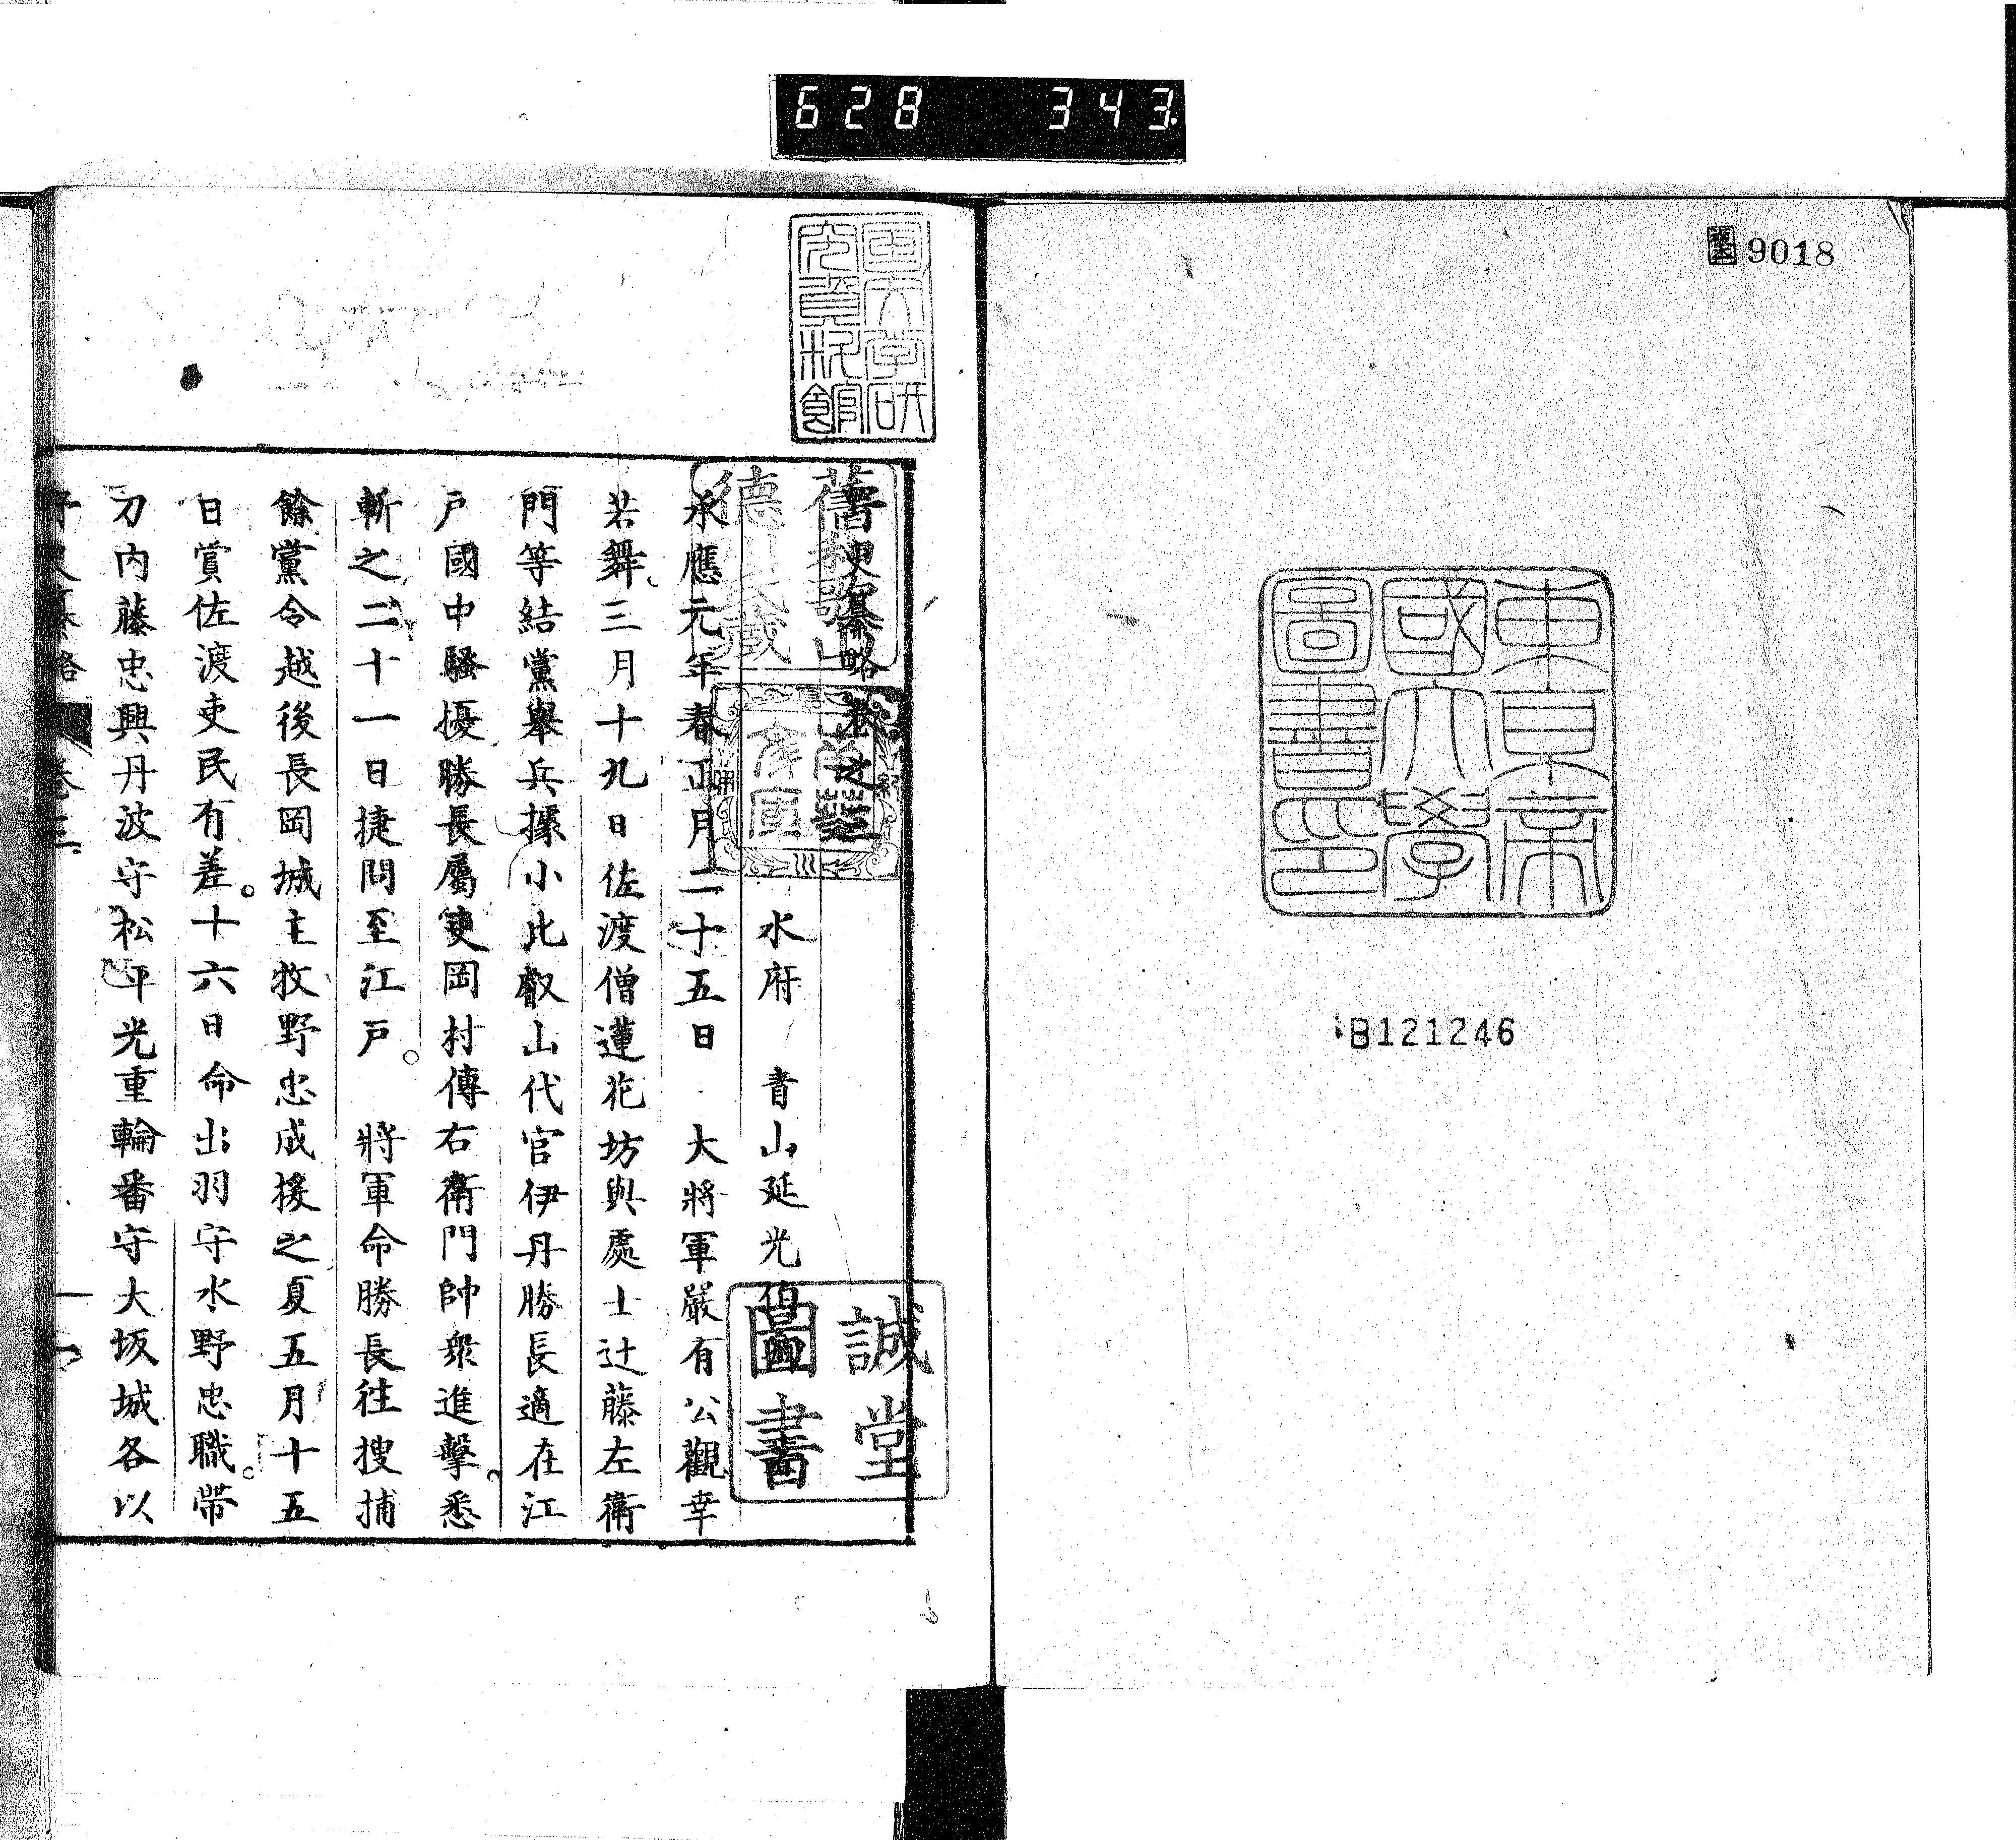 628 343
9018
東京帝
國大學
圖書印
B121246
國文学研
究資料館
舊和歌山
德川氏藏
南葵
文庫
誠堂
圖書
野史纂略 卷之三
水府 青山延光伯卿
承應元年春正月二十五日 大將軍嚴有公觀幸
若舞三月十九日佐渡僧蓮花坊與處士辻藤左衛
門等結黨舉兵據小比叡山代官伊丹勝長適在江
戸國中騷擾勝長屬吏岡村傳右衛門帥衆進擊悉
斬之二十一日捷問至江戸 將軍命勝長往搜捕
餘黨令越後長岡城主牧野忠成援之夏五月十五
日賞佐渡吏民有差十六日命出羽守水野忠職帶
刀内藤忠興丹波守松平光重輪番守大坂城各以
野史纂略 卷三 一